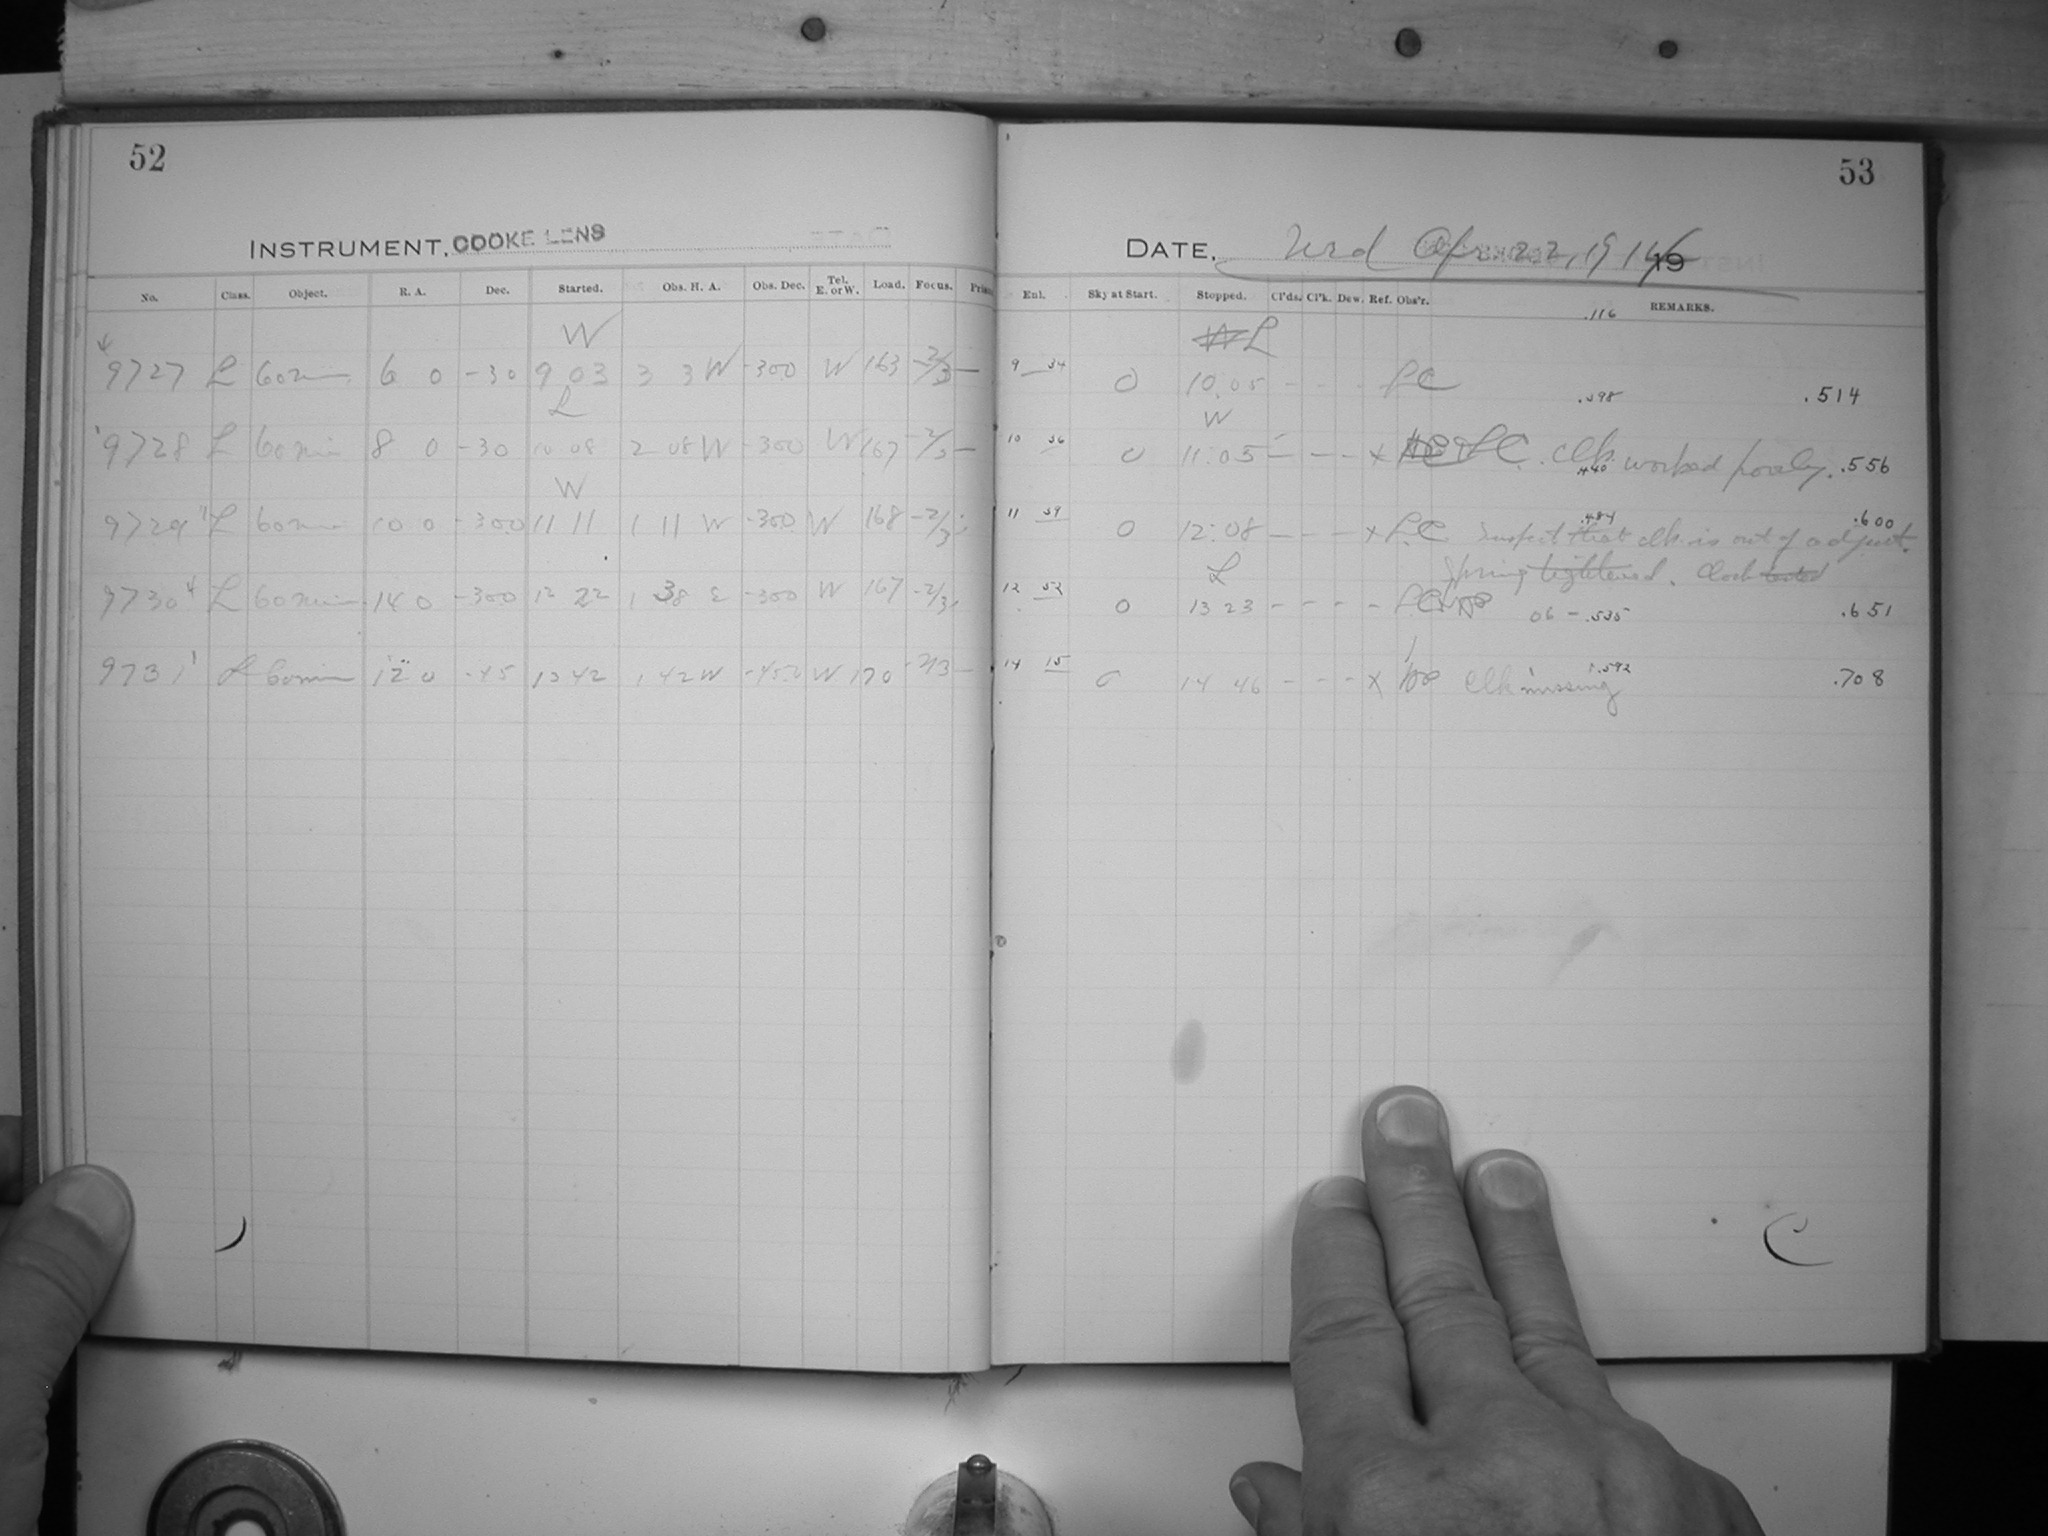 52
53
INSTRUMENT, COOKE LENS
DATE, Wed Apr. 22, 1914 19
No. Class. Object. R. A. Dec. Started. Obs. H. A. Obs. Dec. Tel. E. or W. Load. Focus. Prism
Enl. Sky at Start. Stopped. Cl'ds. Cl'k. Dew. Ref. Obs'r. REMARKS.
.116
W
W L
9727 L 60 min 6 0 -30 9 03 3 3 W -300 W 163 -2/3 —
9 34 0 10.05 - - - LC
.398 .514
L
W
9728 L 60 min 8 0 -30 10 08 2 08 W -300 W 167 -2/3 —
10 36 0 11:05 - - - x LC. Clk. worked poorly.
.440 .556
W
9729 L 60 min 10 0 -300 11 11 1 11 W -300 W 168 -2/3
11 39 0 12:08 - - - x LC Suspect that clk. is out of adjust.
.484 .600
L
Spring tightened. Clock tested
9730 L 60 min 14 0 -300 12 22 1 38 E -300 W 167 -2/3
12 52 0 13 23 - - - - LC
06 - .535 .651
9731 L 60 min 12 0 -45 13 42 1 42 W -450 W 170 -2/3 —
14 15 0 14 46 - - - x Clk missing
.592 .708